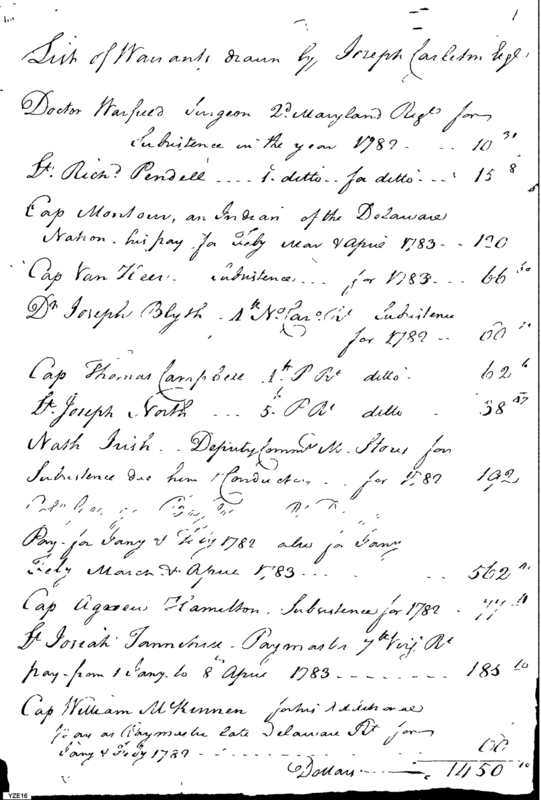 1
List of Warrants drawn by Joseph Carleton Esqr
Doctor Warfield Surgeon 2d Maryland Regt for
Subsistence in the year 1782 - - 10 30
Lt Richd Pendell .... 1. ditto .. for ditto .... 15 8
Cap Montour, an Indian of the Delaware
Nation. his pay for Feby Mar & April 1783 - - 120
Cap Van Heer. Subsistence ... for 1783 ... 66
Dr Joseph Blyth. 1st No Caro Rt Subsistence
for 1782 --
Cap Thomas Campbell 1t. P Rt ditto. 62 6
Lt Joseph North ... 5. P Rt ditto . 58
Nath Irish .. Deputy Commy M. Stores for
Subsistence due him & Conductors ... for 1782 192
Pay for Jany & Feby 1782 also for Jany
Feby March & April 1783 - - - . . 562
Cap Agnew Hamilton. Subsistence for 1782 - 77
Lt Josiah Tannehill - Paymaster 7th Virg. Rt
pay from 1 Jany to 8th April 1783 - - - - - - - - 185 10
Cap William McKennen for his additional
pay as Paymaster late Delaware Rt for
Jany & Feby 1782 - - - - - - - - - -
Dollars 1450 10
YZE16